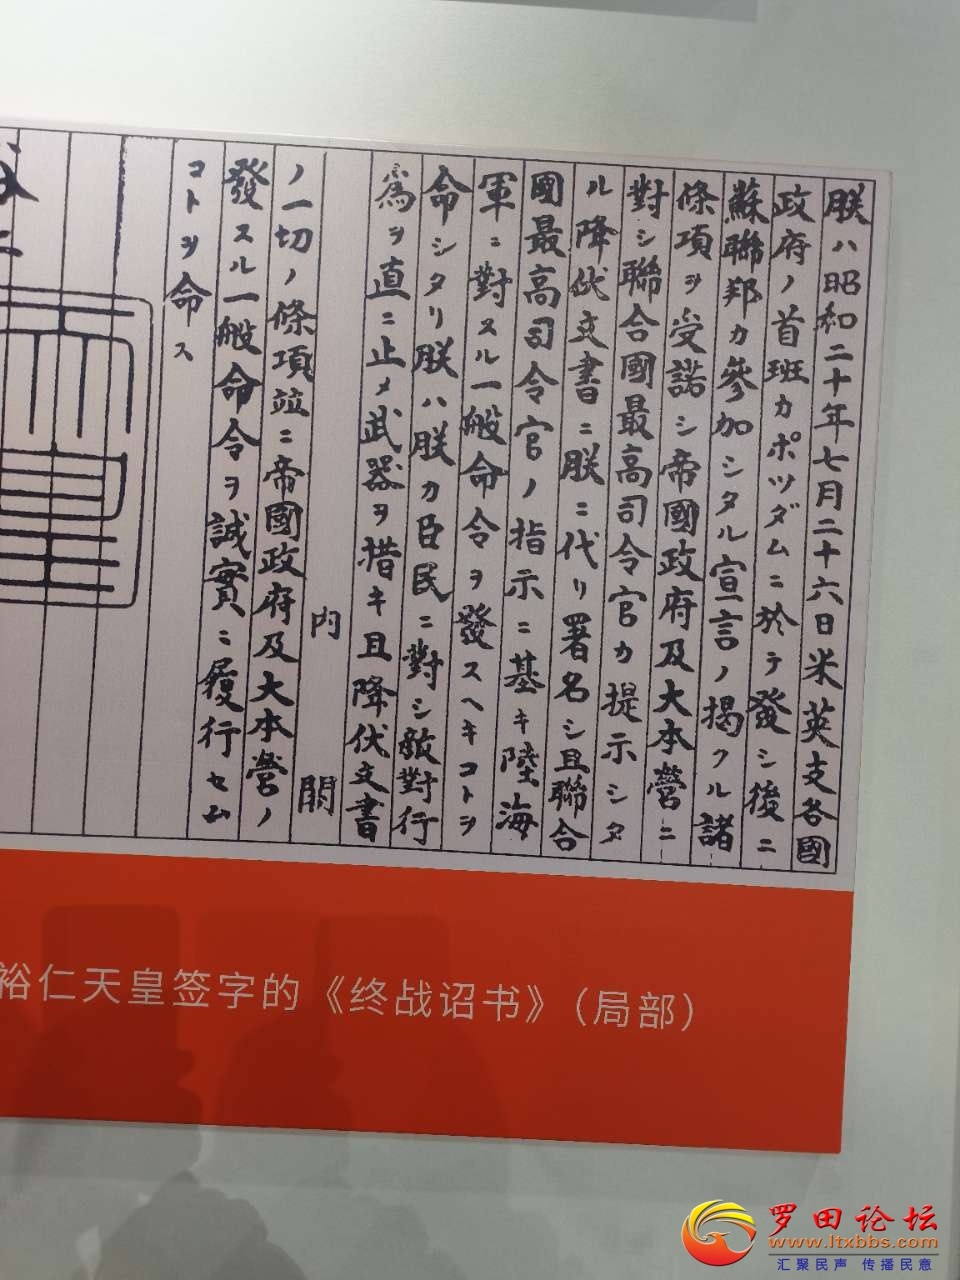 朕ハ昭和二十年七月二十六日米英支各國
政府ノ首班カポツダムニ於テ發シ後ニ
蘇聯邦カ參加シタル宣言ノ掲クル諸
條項ヲ受諾シ帝國政府及大本營ニ
對シ聯合國最高司令官カ提示シタ
ル降伏文書ニ朕ニ代リ署名シ且聯合
國最高司令官ノ指示ニ基キ陸海
軍ニ對スル一般命令ヲ發スヘキコトヲ
命シタリ朕ハ朕カ臣民ニ對シ敵對行
爲ヲ直ニ止メ武器ヲ措キ且降伏文書
內閣
ノ一切ノ條項竝ニ帝國政府及大本營ノ
發スル一般命令ヲ誠實ニ履行セム
コトヲ命ス
裕仁天皇签字的《终战诏书》（局部）
罗田论坛
www.ltxbbs.com
汇聚民声 传播民意